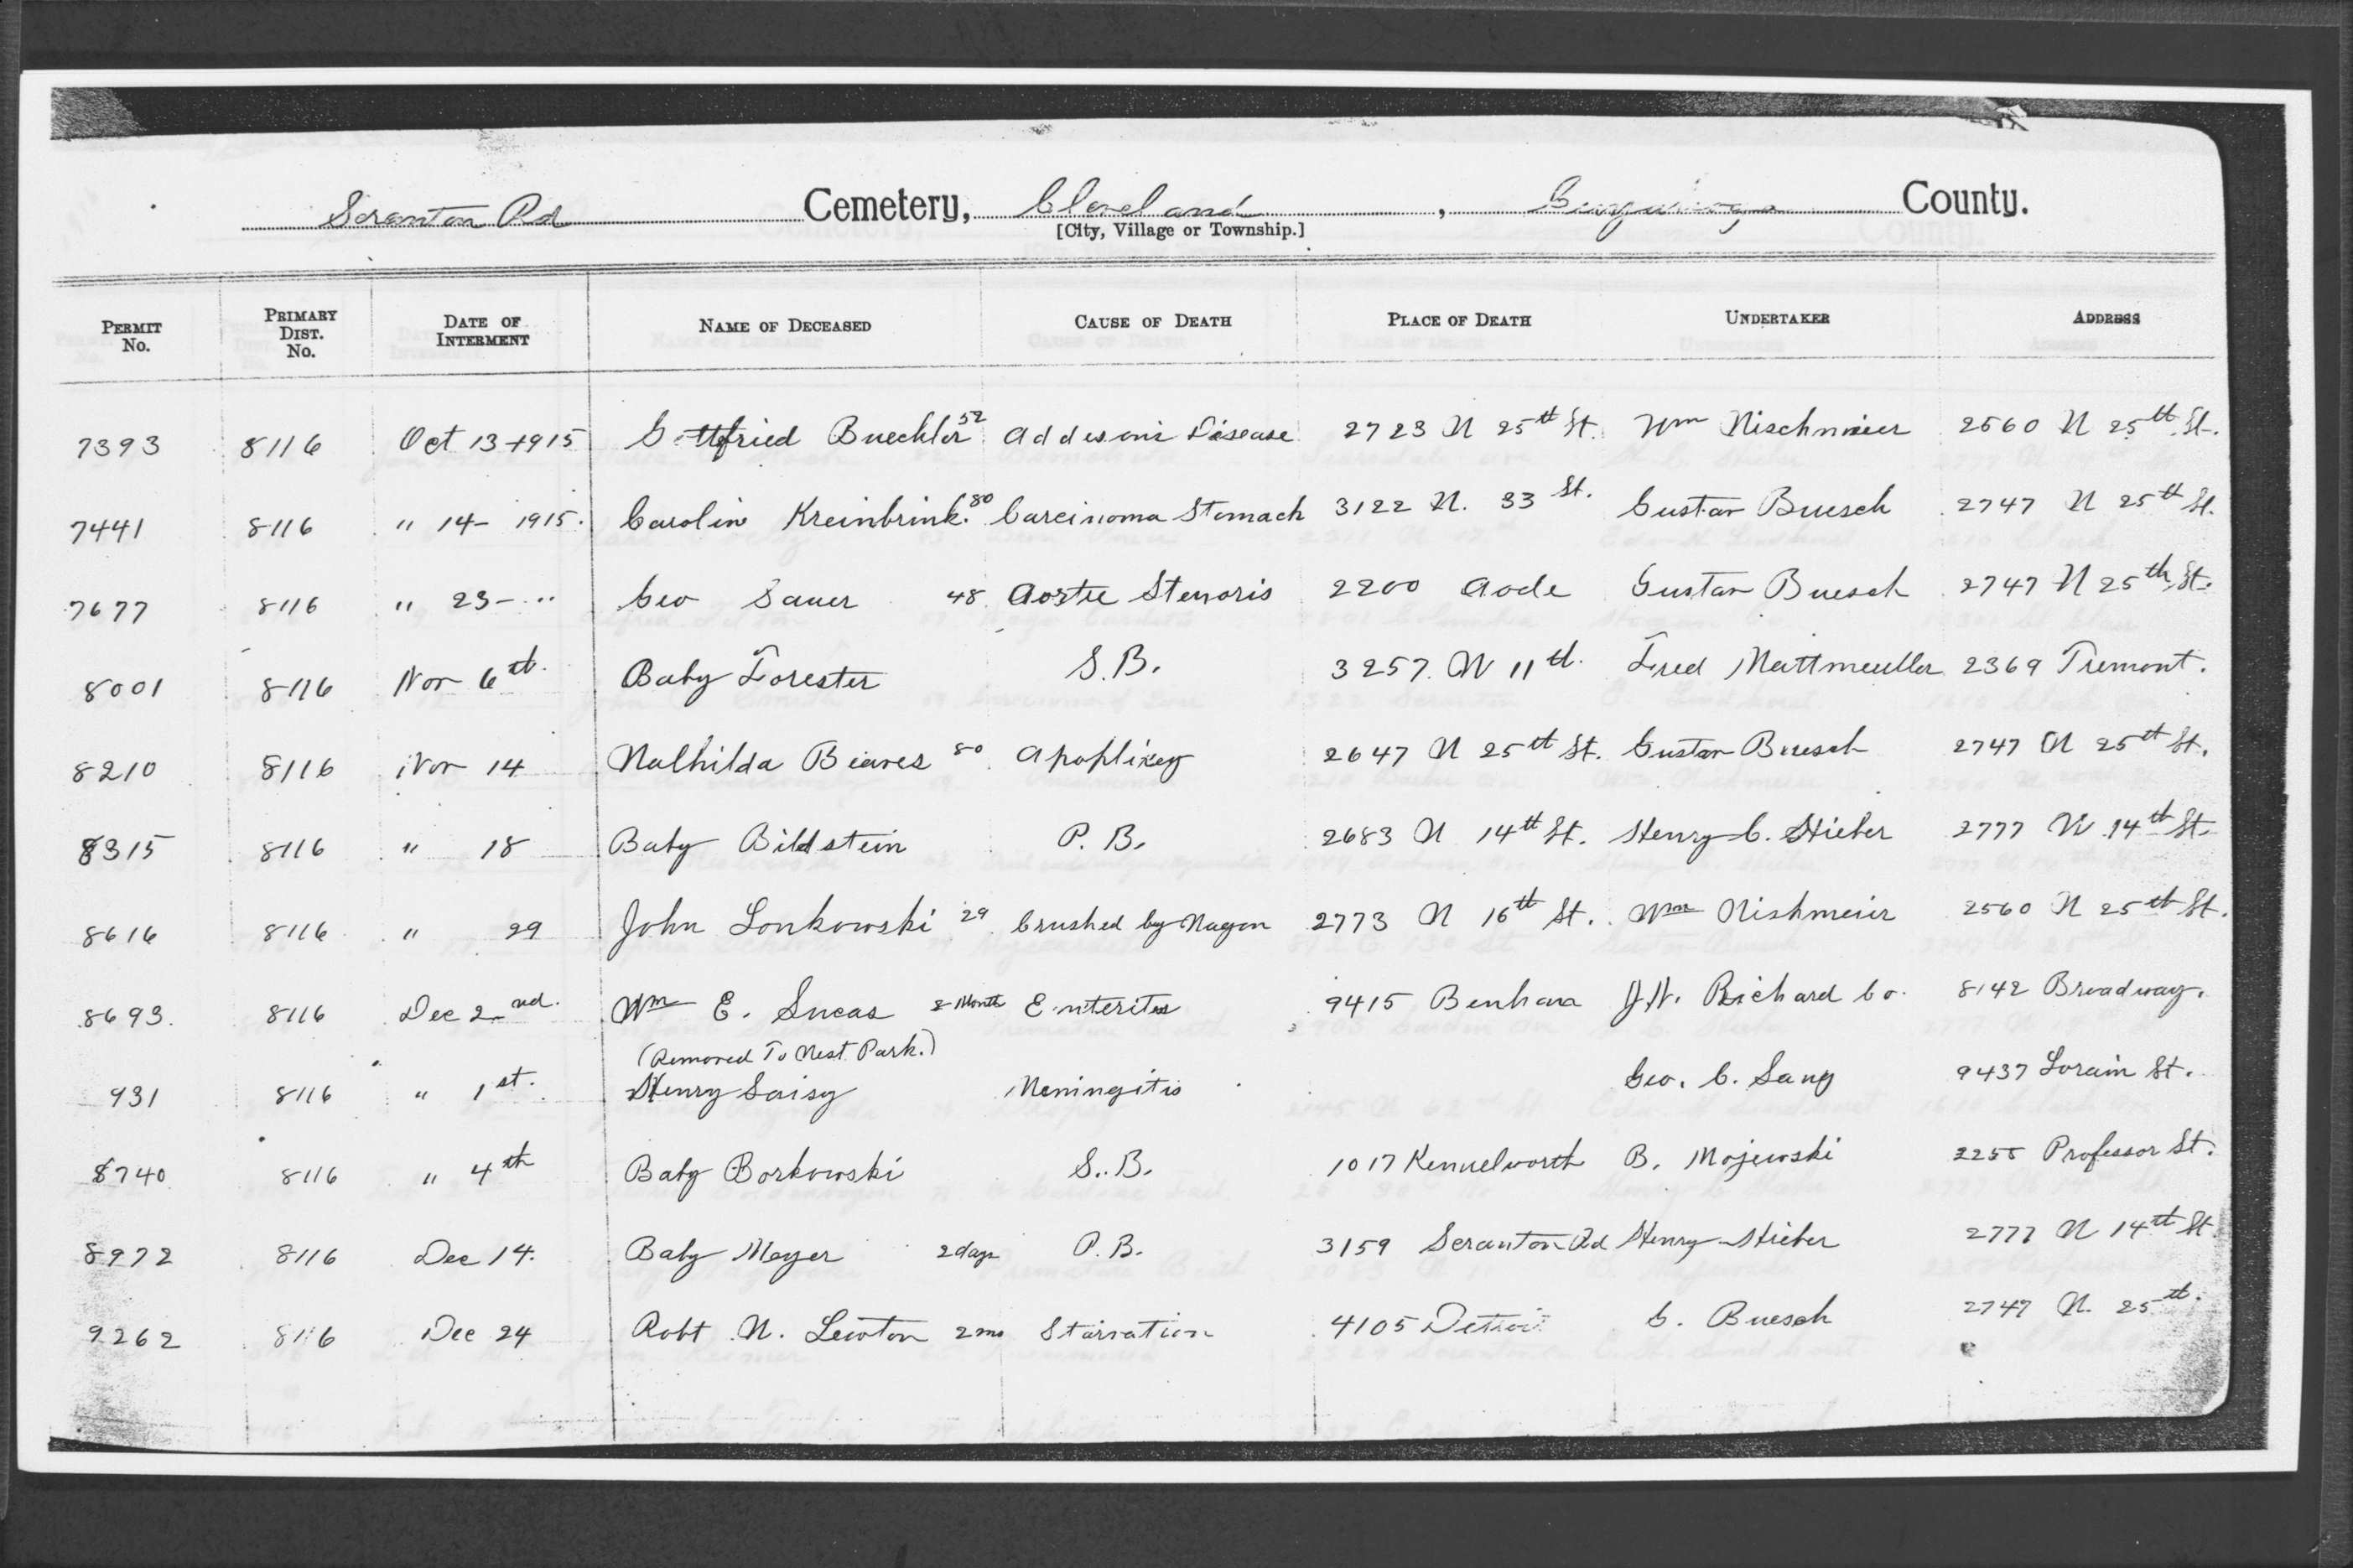 Scranton Rd Cemetery, Cleveland, Cuyahoga County.
[City, Village or Township.]
PERMIT No. PRIMARY DIST. No. DATE OF INTERMENT NAME OF DECEASED CAUSE OF DEATH PLACE OF DEATH UNDERTAKER ADDRESS
7393 8116 Oct 13-1915 Gottfried Buechler 52 Addisons Disease 2723 W 25th St. Wm Nischmier 2560 W 25th St.
7441 8116 " 14- 1915. Carolin Kreinbrink. 80 Carcinoma Stomach 3122 W. 33 St. Gustav Buesch 2747 W 25th St.
7677 8116 " 23- " Geo Sauer 48 Aortic Stenoris 2200 Gustav Buesch 2747 W 25th St.
8001 8116 Nov 6th. Baby Forester S.B. 3257. W 11th. Fred Mattmeuller 2369 Tremont.
8210 8116 Nov 14 Mathilda 80 Apoplixey 2647 W 25th St. Gustav Buesch 2747 W 25th St.
8315 8116 " 18 Baby Bildstein P. B. 2683 W 14th St. Henry C. Stieber 2777 W 14th St.
8616 8116 " 29 John Lonkowski 29 Crushed by Wagon 2773 W 16th St. Wm Nishmeier 2560 W 25th St.
8693. 8116 Dec 2nd. Wm E. Lucas 2 Month Enterites 9415 Benham J.W. Richard Co. 8142 Broadway.
(Removed To West Park.)
931 8116 " 1st. Henry Meningitis Geo. C. Lang 9437 Lorain St.
8740 8116 " 4th Baby Borkowski S.. B. 1017 Kennelworth B. Mojewski 2255 Professor St.
8972 8116 Dec 14. Baby Meyer 2 days P. B. 3159 Scranton Rd Henry Stieber 2777 W 14th St
9262 8116 Dec 24 Robt W. Lewton 2 mo Starvation 4105 Detroit G. Buesch 2747 W. 25th.